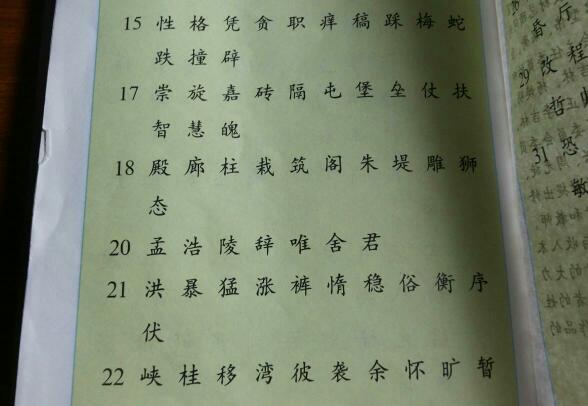 15 性 格 凭 贪 职 痒 稿 踩 梅 蛇
跌 撞 辟
17 崇 旋 嘉 砖 隔 屯 堡 垒 仗 扶
智 慧 魄
18 殿 廊 柱 栽 筑 阁 朱 堤 雕 狮
态
20 孟 浩 陵 辞 唯 舍 君
21 洪 暴 猛 涨 裤 惰 稳 俗 衡 序
伏
22 峡 桂 移 湾 彼 袭 余 怀 旷 暂
昏 厅
29 改 程
哲
31 恐
敬